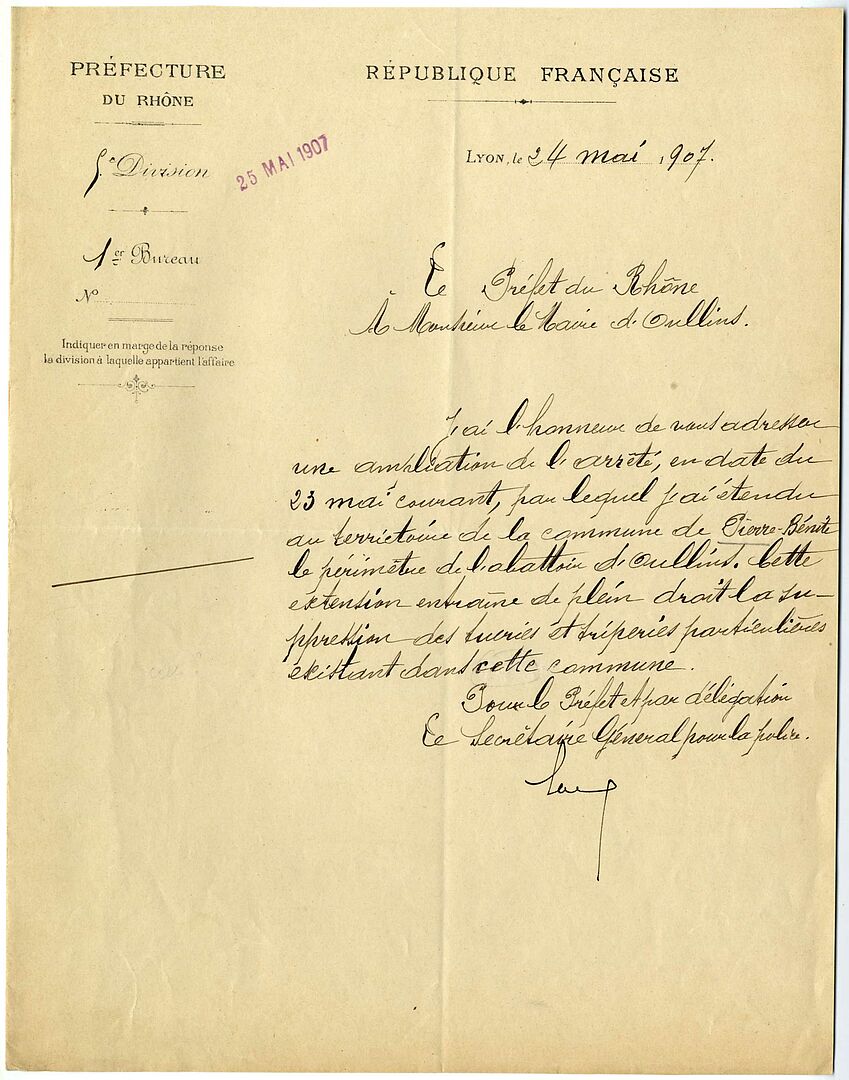 PRÉFECTURE
DU RHÔNE
5.e Division
1er Bureau
No
Indiquer en marge de la réponse
la division à laquelle appartient l'affaire
25 MAI 1907
RÉPUBLIQUE FRANÇAISE
LYON, le 24 mai 1907.
Le Préfet du Rhône
À Monsieur le Maire d'Oullins.
J'ai l'honneur de vous adresser
une ampliation de l'arrêté, en date du
23 mai courant, par lequel j'ai étendu
au territoire de la commune de Pierre-Bénite
le périmètre de l'abattoir d'Oullins. Cette
extension entraîne de plein droit la su-
ppression des tueries et triperies particulières
existant dans cette commune.
Pour le Préfet et par délégation
Le Secrétaire Général pour la police.